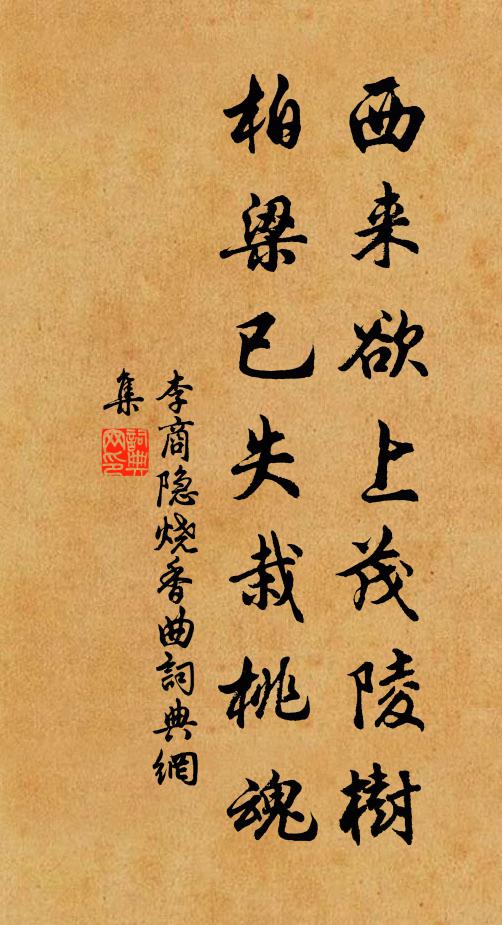 西来欲上茂陵樹
柏梁已失栽桃魂
李商隐烧香曲詞典網
集
詞典网印